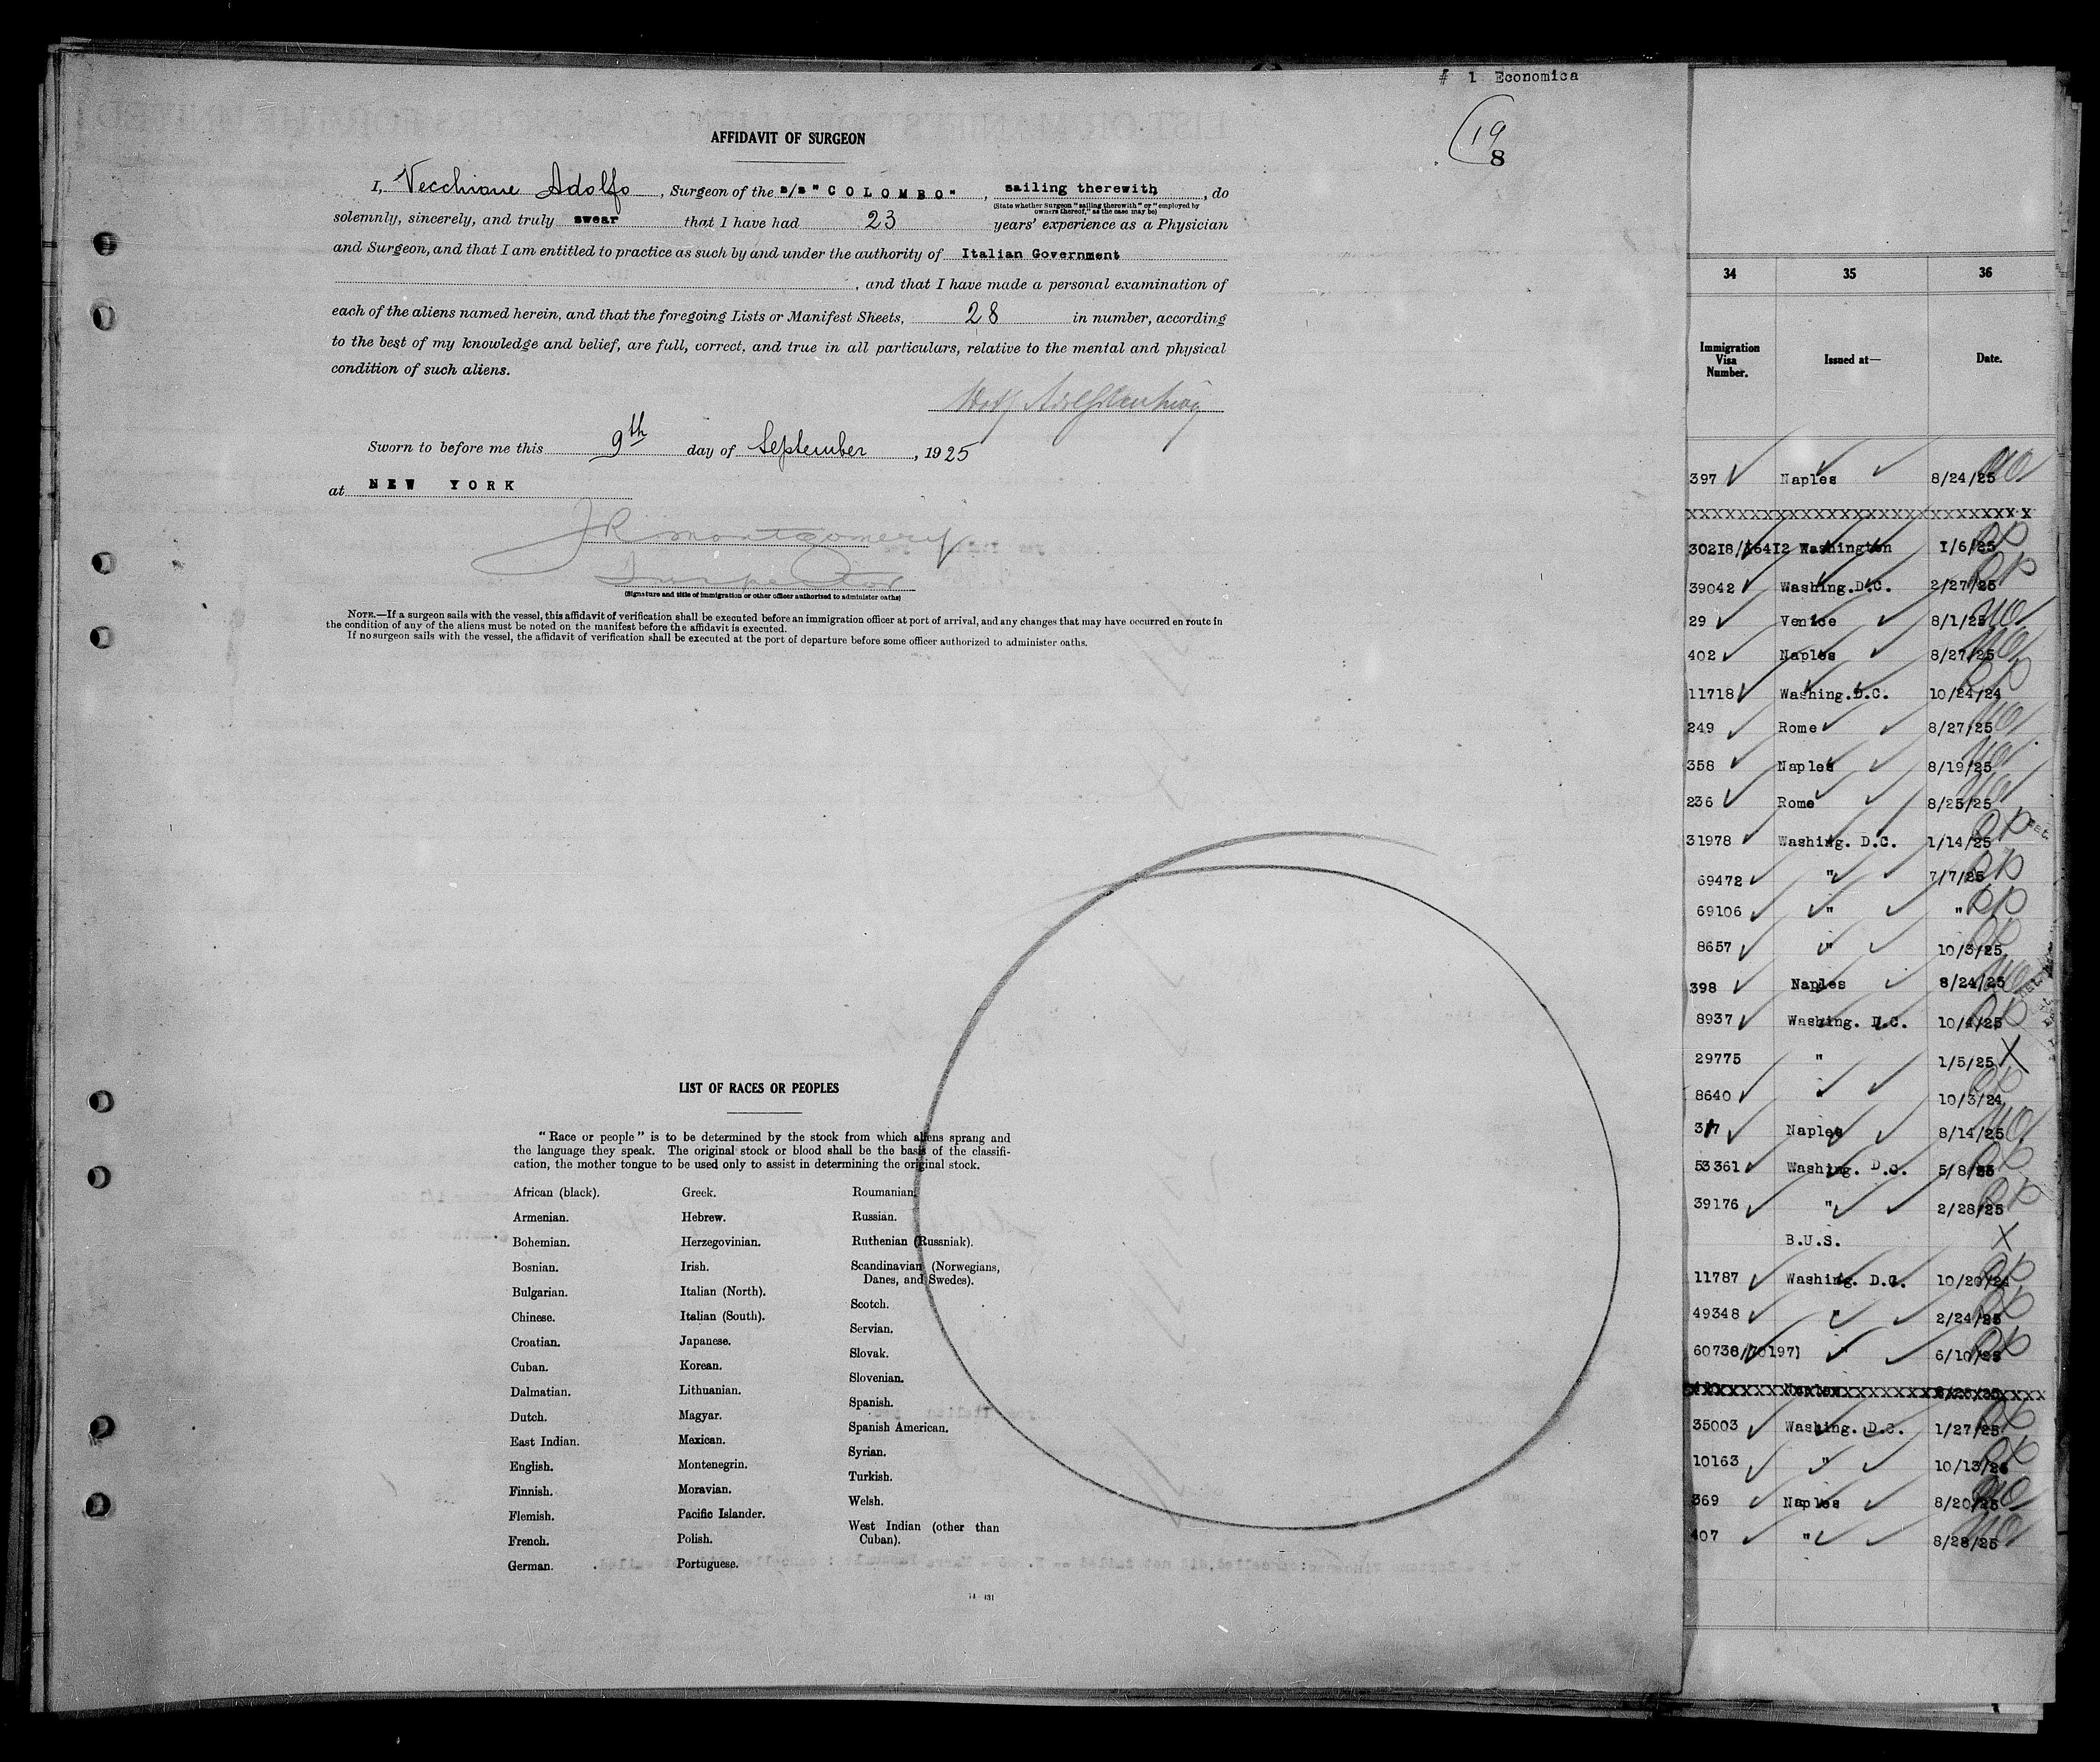 # 1 Economica
19
8
AFFIDAVIT OF SURGEON
I, Vecchione Adolfo, Surgeon of the s/s "COLOMBO", sailing therewith, do
(State whether Surgeon "sailing therewith" or "employed by
owners thereof," as the case may be)
solemnly, sincerely, and truly swear that I have had 23 years' experience as a Physician
and Surgeon, and that I am entitled to practice as such by and under the authority of Italian Government
, and that I have made a personal examination of
each of the aliens named herein, and that the foregoing Lists or Manifest Sheets, 28 in number, according
to the best of my knowledge and belief, are full, correct, and true in all particulars, relative to the mental and physical
condition of such aliens.
Sworn to before me this 9th day of September, 1925
at NEW YORK
JR Montgomery
Inspector
(Signature and title of immigration or other officer authorized to administer oaths)
NOTE.—If a surgeon sails with the vessel, this affidavit of verification shall be executed before an immigration officer at port of arrival, and any changes that may have occurred en route in
the condition of any of the aliens must be noted on the manifest before the affidavit is executed.
If no surgeon sails with the vessel, the affidavit of verification shall be executed at the port of departure before some officer authorized to administer oaths.
LIST OF RACES OR PEOPLES
"Race or people" is to be determined by the stock from which aliens sprang and
the language they speak. The original stock or blood shall be the basis of the classifi-
cation, the mother tongue to be used only to assist in determining the original stock.
African (black).
Armenian.
Bohemian.
Bosnian.
Bulgarian.
Chinese.
Croatian.
Cuban.
Dalmatian.
Dutch.
East Indian.
English.
Finnish.
Flemish.
French.
German.
Greek.
Hebrew.
Herzegovinian.
Irish.
Italian (North).
Italian (South).
Japanese.
Korean.
Lithuanian.
Magyar.
Mexican.
Montenegrin.
Moravian.
Pacific Islander.
Polish.
Portuguese.
Roumanian.
Russian.
Ruthenian (Russniak).
Scandinavian (Norwegians,
Danes, and Swedes).
Scotch.
Servian.
Slovak.
Slovenian.
Spanish.
Spanish American.
Syrian.
Turkish.
Welsh.
West Indian (other than
Cuban).
34 35 36
Immigration
Visa
Number.
Issued at—
Date.
397 Naples 8/24/25
XXXXXXXXXXXXXXXXXXXXXXXXXXX
30218/16412 Washington 1/6/25
39042 Washing.D.C. 2/27/25
29 Venice 8/1/25
402 Naples 8/27/25
11718 Washing.D.C. 10/24/24
249 Rome 8/27/25
358 Naples 8/19/25
236 Rome 8/25/25
31978 Washing. D.C. 1/14/25
69472 " 7/7/25
69106 " "
8657 " 10/3/25
398 Naples 8/24/25
8937 Washing. D.C. 10/4/25
29775 " 1/5/25 X
8640 " 10/3/24
317 Naples 8/14/25
53361 Washing. D.C. 5/8/25
39176 " 2/28/25
B.U.S. X
11787 Washing. D.C. 10/20/24
49348 " 2/24/25
60738/70197) " 6/10/25
35003 Washing. D.C. 1/27/25
10163 " 10/13/24
369 Naples 8/20/25
407 " 8/28/25